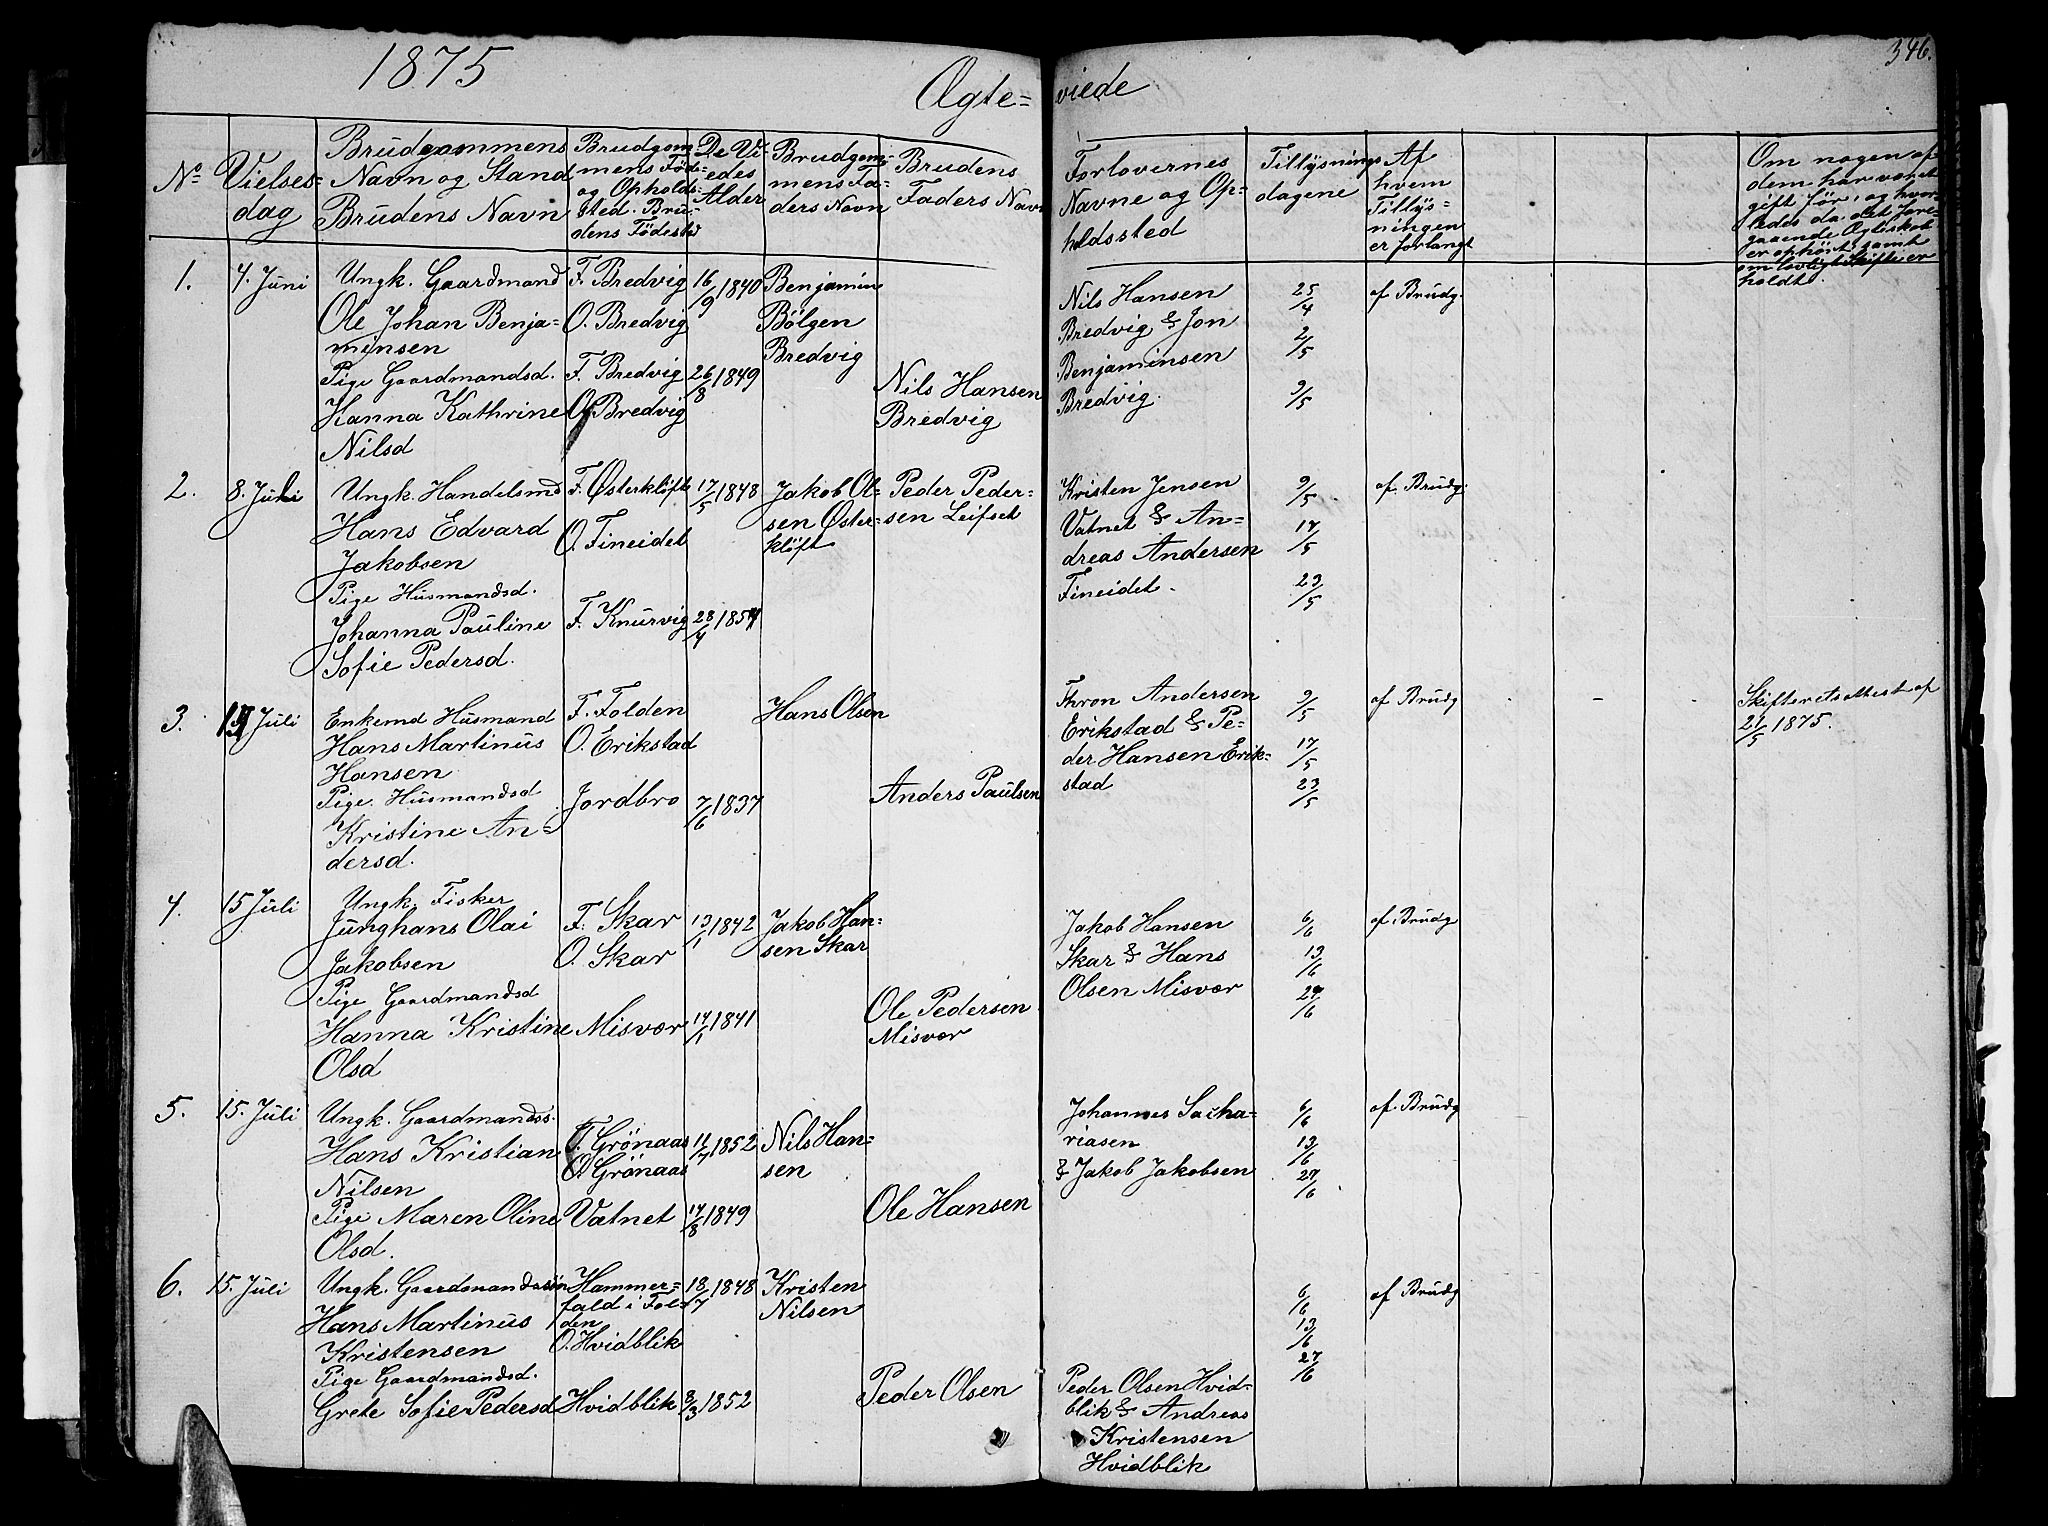 1875
Ægte=
viede
346.
No
Vielses=
dag
Brudgommens
Navn og Stand
Brudens Navn
Brudgom
mens Föde
og Opholds-
sted. Bru-
dens Födested
De Vi-
edes
Alder
Brudgom-
mens Fa-
ders Navn
Brudens
Faders Navn
Forlovernes
Navne og Op-
holdssted
Tillysnings
dagene
Af
hvem
Tillys=
ningen
er forlangt
Om nogen af
dem har været
gift för, og hvor-
ledes da det fore-
gaaende Ægteskab
er ophört, samt
om lovligt Skifte er
holdt.
1.
7. Juni
Ungk. Gaardmand
Ole Johan Benja-
minsen
Pige Gaardmandsd.
Hanna Kathrine
Nilsd
F. Bredvig
O. Bredvig
F. Bredvig
O. Bredvig
16/9 1840
26/8 1849
Benjamin
Bölgen
Bredvig
Nils Hansen
Bredvig
Nils Hansen
Bredvig & Jon
Benjaminsen
Bredvig.
25/4
2/5
9/5
af Brudg.
2.
8. Juli
Ungk. Handelsmd
Hans Edvard
Jakobsen
Pige Husmandsd.
Johanna Pauline
Sofie Pedersd.
F. Østerklöft
O. Fineidet
F. Knurvig
17/5 1848
28/4 1854
Jakob Ol-
sen Øster-
klöft
Peder Peder-
sen Leifset
Kristen Jensen
Vatnet & An-
dreas Andersen
Fineidet.
9/5
17/5
23/5
af Brudg.
3.
Juli
Enkemd Husmand
Hans Martinus
Hansen
Pige. Husmandsd
Kristine An-
dersd.
F. Folden
O. Erikstad
Jordbro
7/6 1837
Hans Olsen
Anders Paulsen
Thron Andersen
Erikstad & Pe-
der Hansen Erik-
stad
9/5
17/5
23/5
af Brudg
-
Skifteretsattest af
21/5 1875.
4.
15 Juli
Ungk. Fisker
Junghans Olai
Jakobsen
Pige Gaardmandsd
Hanna Kristine
Olsd
F. Skar
O. Skar
Misvær
13/1 1842
14/1 1841
Jakob Han-
sen Skar
Ole Pedersen
Misvær
Jakob Hansen
Skar & Hans
Olsen Misvær
6/6
13/6
27/6
af Brudg
5.
15. Juli
Ungk. Gaardmandss.
Hans Kristian
Nilsen
Pige Maren Oline
Olsd.
F. Grönaas
O. Grönaas
Vatnet
11/4 1852
14/8 1849
Nils Han=
sen
Ole Hansen
Johannes Sacha-
riasen
& Jakob Jakobsen
6/6
13/6
27/6
af Brudg
6.
15. Juli
Ungk. Gaardmandssön
Hans Martinus
Kristensen
Pige Gaardmandsd.
Grete Sofie Pedersd
Hammer=
fald i Fol-
den
O. Hvidblik
Hvidblik
18/7 1848
8/3 1852
Kristen
Nilsen
Peder Olsen
Peder Olsen Hvid-
blik & Andreas
Kristensen
Hvidblik
6/6
13/6
27/6
af Brudg